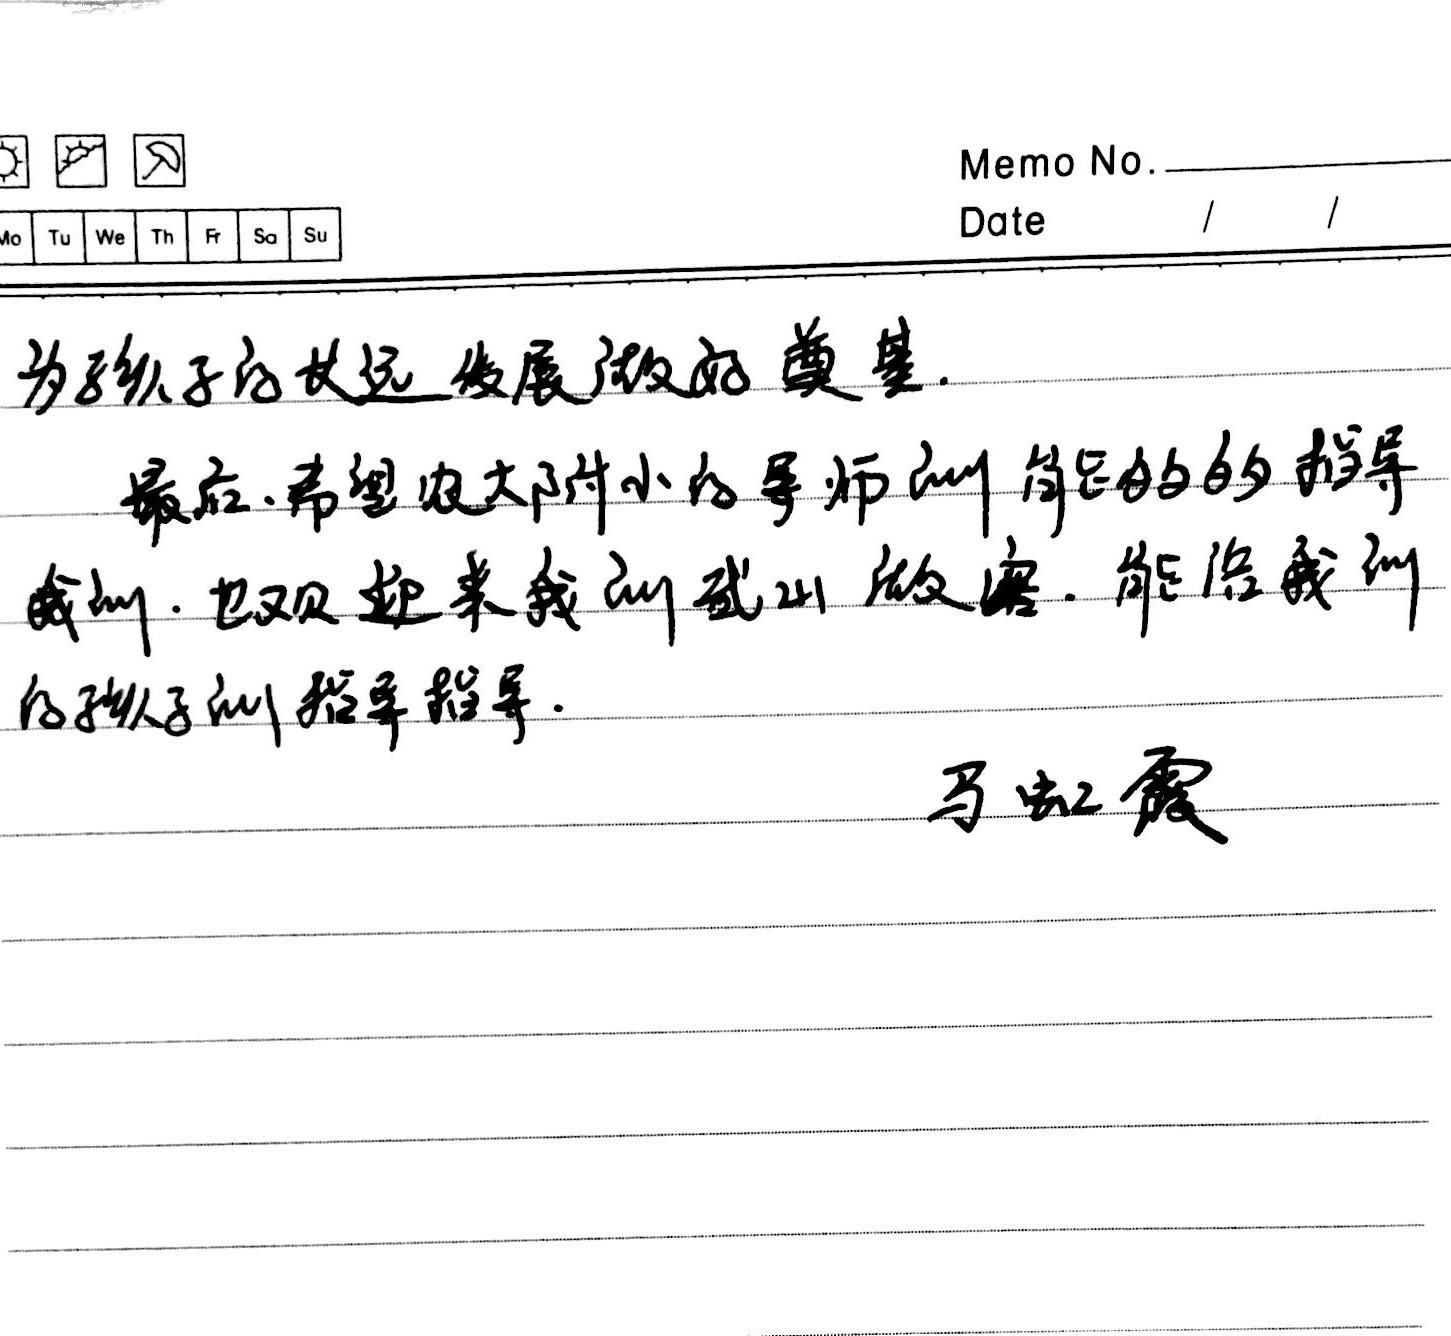 Memo No.
Mo Tu We Th Fr Sa Su
Date / /
为孩子的长远发展做好奠基.
最后.希望农大附小的导师们能多多的指导
我们.也欢迎来我们武山做客.能给我们
的孩子们指导指导.
马虹霞